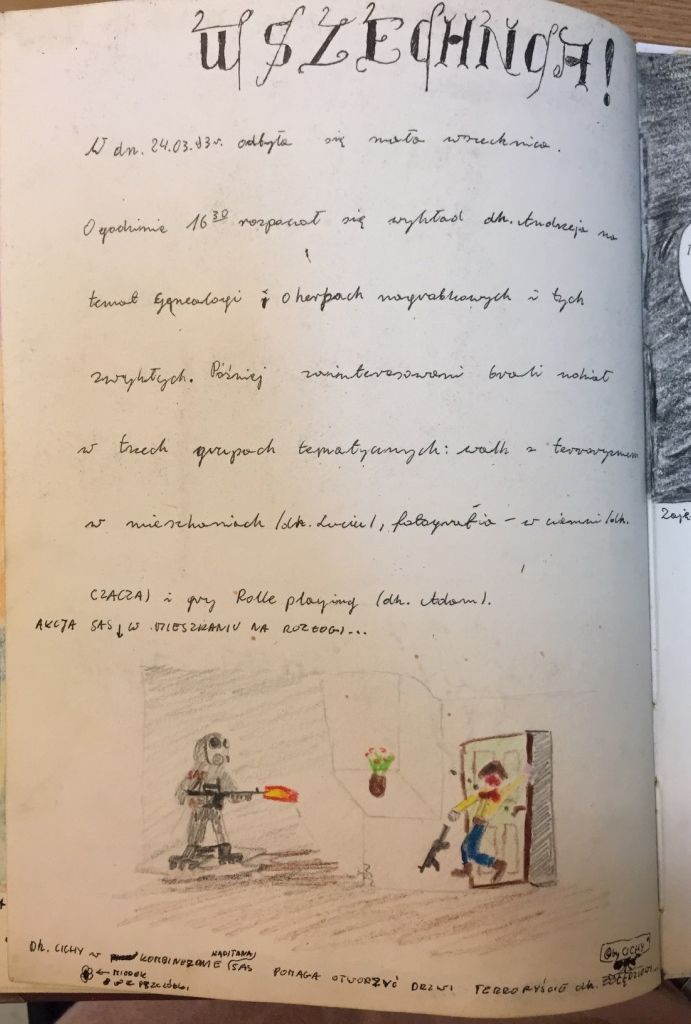 WSZECHNICA!
W dn. 24.03.93r. odbyła się mała wszechnica.
O godzinie 16³⁰ rozpoczął się wykład dh. Andrzeja na
temat genealogi i o herbach nagrobkowych i tych
zwykłych. Później zainteresowani brali udział
w trzech grupach tematycznych: walk z terroryzmem
w mieszkaniach (dk. Lucie), fotografia – w ciemni (dk.
CZACZA) i gry Rolle playing (dh. Adam).
AKCJA SAS ↓ W MIESZKANIU NA ROZŁOGI...
DH. CICHY W KOMBINEZONIE KAPITANA (SAS POMAGA OTWORZYĆ DRZWI TERRORYŚCIE dh.
← MIODEK
← PSZCZÓŁKI
@by CICHY
Zaję